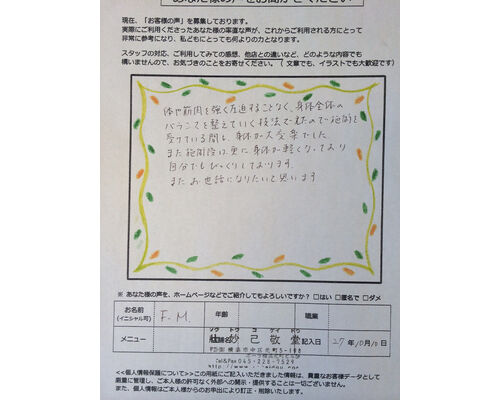 現在、「お客様の声」を募集しております。
実際にご利用くださったあなた様の率直な声が、これからご利用される方にとって
非常に参考になり、私どもにとっても何よりの力となります。
スタッフの対応、ご利用してみての感想、他店との違いなど、どのような内容でも
構いませんので、お気づきのことをお寄せください。（文章でも、イラストでも大歓迎です）
体や筋肉を強く圧迫することなく、身体全体の
バランスを整えていく技法でしたので施術を
受けている間も、身体が大変楽でした。
また施術後は更に身体が軽くなっており
自分でもびっくりしております。
またお世話になりたいと思います
※ あなた様の声を、ホームページなどでご紹介してもよろしいですか？ □はい □匿名で □ダメ
お名前
(イニシャル可)
F.M.
年齢
職業
メニュー
妙己敬堂
記入日 27年10月10日
横浜市中区元町5-188
Tel&Fax 045-228-7529
<<個人情報保護について>> この用紙にご記入いただきました情報は、貴重なお客様データとして
厳重に管理し、ご本人様の許可なく外部への開示・提供することは一切ございません。
また、個人情報はご本人様からのお申出により訂正・削除いたします。